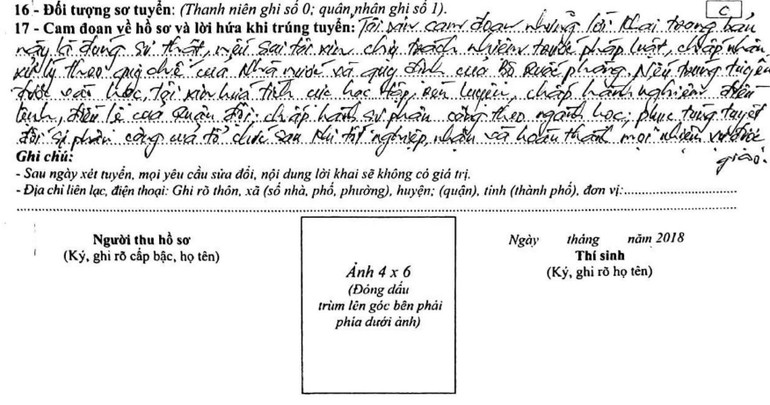 16 - Đối tượng sơ tuyển: (Thanh niên ghi số 0; quân nhân ghi số 1). C
17 - Cam đoan về hồ sơ và lời hứa khi trúng tuyển: Tôi xin cam đoan những lời khai trong bản
này là đúng sự thật, nếu sai tôi xin chịu trách nhiệm trước pháp luật, chấp nhận
xử lý theo quy chế của Nhà nước và quy định của Bộ Quốc phòng. Nếu trúng tuyển
được vào học, tôi xin hứa tích cực học tập, rèn luyện, chấp hành nghiêm điều
lệnh, điều lệ của Quân đội; chấp hành sự phân công theo ngành học; phục tùng tuyệt
đối sự phân công của tổ chức sau khi tốt nghiệp, nhận và hoàn thành mọi nhiệm vụ được
giao.
Ghi chú:
- Sau ngày xét tuyển, mọi yêu cầu sửa đổi, nội dung lời khai sẽ không có giá trị.
- Địa chỉ liên lạc, điện thoại: Ghi rõ thôn, xã (số nhà, phố, phường), huyện; (quận), tỉnh (thành phố), đơn vị:
Người thu hồ sơ
(Ký, ghi rõ cấp bậc, họ tên)
Ảnh 4 x 6
(Đóng dấu
trùm lên góc bên phải
phía dưới ảnh)
Ngày tháng năm 2018
Thí sinh
(Ký, ghi rõ họ tên)